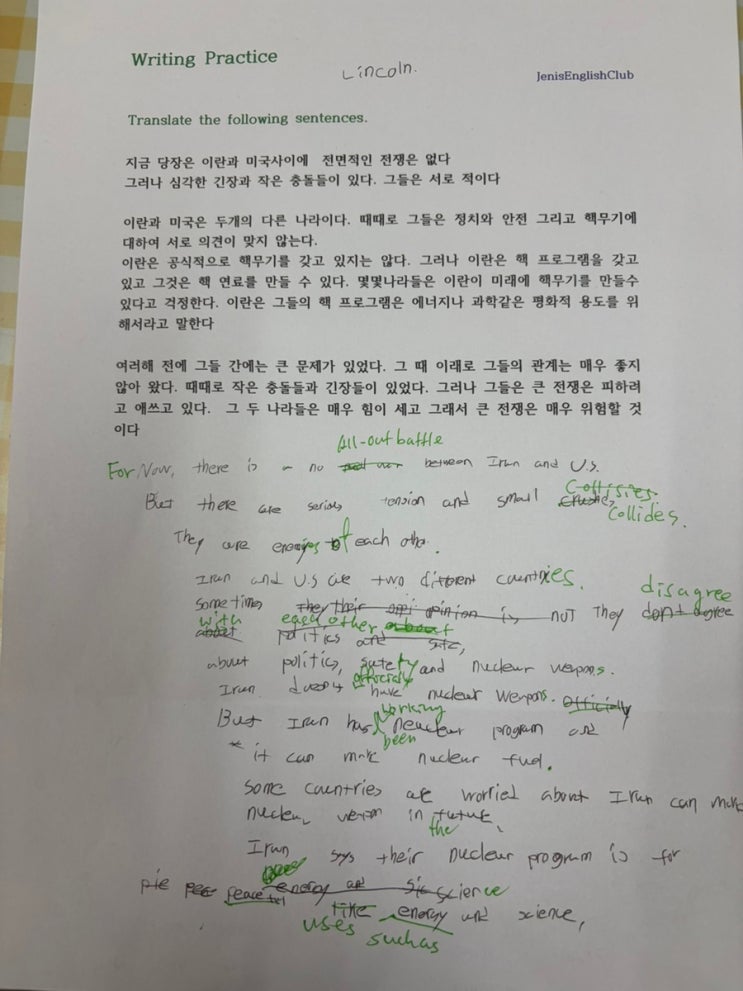 Writing Practice
Lincoln.
JenisEnglishClub
Translate the following sentences.
지금 당장은 이란과 미국사이에 전면적인 전쟁은 없다
그러나 심각한 긴장과 작은 충돌들이 있다. 그들은 서로 적이다
이란과 미국은 두개의 다른 나라이다. 때때로 그들은 정치와 안전 그리고 핵무기에
대하여 서로 의견이 맞지 않는다.
이란은 공식적으로 핵무기를 갖고 있지는 않다. 그러나 이란은 핵 프로그램을 갖고
있고 그것은 핵 연료를 만들 수 있다. 몇몇나라들은 이란이 미래에 핵무기를 만들수
있다고 걱정한다. 이란은 그들의 핵 프로그램은 에너지나 과학같은 평화적 용도를 위
해서라고 말한다
여러해 전에 그들 간에는 큰 문제가 있었다. 그 때 이래로 그들의 관계는 매우 좋지
않아 왔다. 때때로 작은 충돌들과 긴장들이 있었다. 그러나 그들은 큰 전쟁은 피하려
고 애쓰고 있다. 그 두 나라들은 매우 힘이 세고 그래서 큰 전쟁은 매우 위험할 것
이다
All-out battle
For Now, there is a no between Iran and U.S.
Collisies.
But there are serious tension and small
Collides.
They are enemies of each other.
Iran and U.S are two different countries.
disagree
some times they their opinion is NOT They don't agree
with each other about
politics and
about politics, safety and nuclear weapons.
officially
Iran doesn't have nuclear weapons. officially
working
But Iran has neuclear program and
been
* it can make nuclear fuel.
Some countries are worried about Iran can make
nuclear weapon in future,
the
Iran says their nuclear program is for
peaceful energy and science
like energy and science,
uses such as